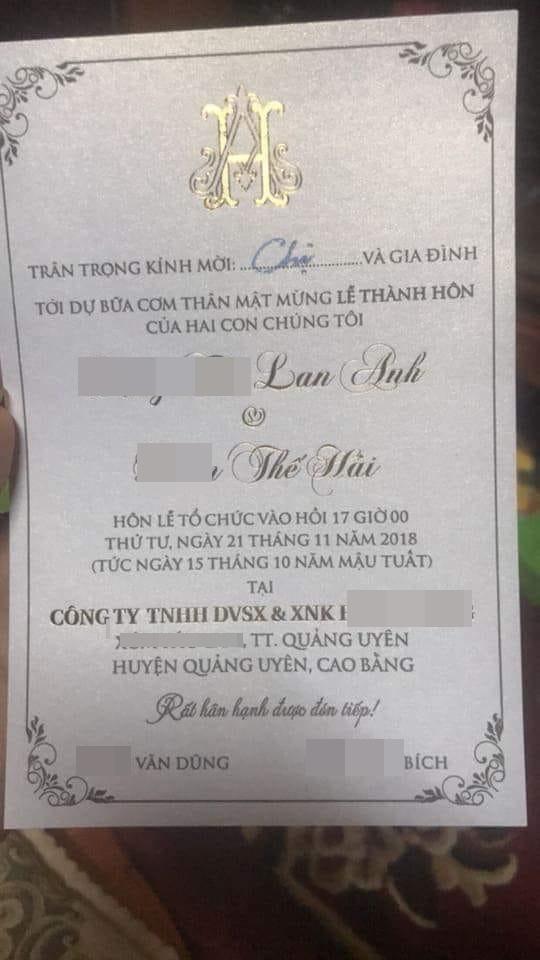 AH
TRÂN TRỌNG KÍNH MỜI: Chị VÀ GIA ĐÌNH
TỚI DỰ BỮA CƠM THÂN MẬT MỪNG LỄ THÀNH HÔN
CỦA HAI CON CHÚNG TÔI
Lan Anh
Thế Hải
HÔN LỄ TỔ CHỨC VÀO HỒI 17 GIỜ 00
THỨ TƯ, NGÀY 21 THÁNG 11 NĂM 2018
(TỨC NGÀY 15 THÁNG 10 NĂM MẬU TUẤT)
TẠI
CÔNG TY TNHH DVSX & XNK
, TT. QUẢNG UYÊN
HUYỆN QUẢNG UYÊN, CAO BẰNG
Rất hân hạnh được đón tiếp!
VĂN DŨNG BÍCH